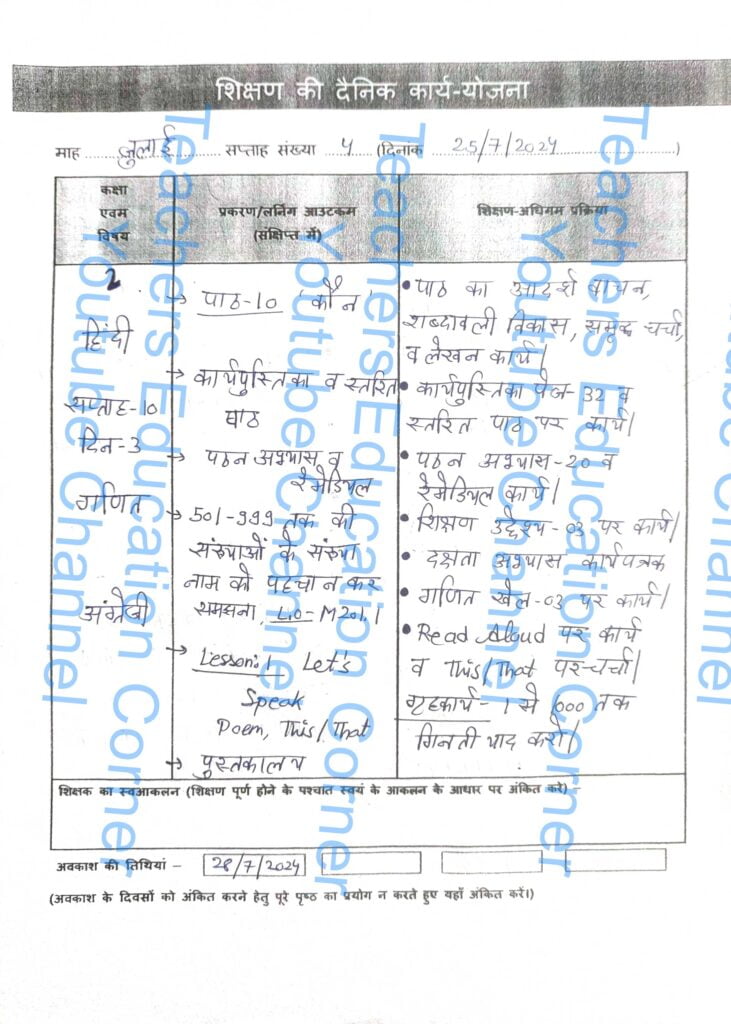 शिक्षण की दैनिक कार्य-योजना
माह जुलाई सप्ताह संख्या 4 (दिनाक 25/7/2024)
कक्षा
एवम
विषय
प्रकरण/लर्निंग आउटकम
(संक्षिप्त में)
शिक्षण-अधिगम प्रक्रिया
2
हिंदी
सप्ताह-10
दिन-3
गणित
अंग्रेजी
→ पाठ-10 'कौन'
→ कार्यपुस्तिका व स्तरित
पाठ
→ पठन अभ्यास व
रेमेडियल
→ 501-999 तक की
संख्याओं के संख्या
नाम को पहचान कर
समझना, LO-M201.1
→ Lesson:1 Let's
Speak
Poem, This/That
→ पुस्तकालय
• पाठ का आदर्श वाचन,
शब्दावली विकास, समूह चर्चा,
व लेखन कार्य|
• कार्यपुस्तिका पेज-32 व
स्तरित पाठ पर कार्य|
• पठन अभ्यास-20 व
रेमेडियल कार्य|
• शिक्षण उद्देश्य-03 पर कार्य|
• दक्षता अभ्यास कार्यपत्रक
• गणित खेल-03 पर कार्य|
• Read Aloud पर कार्य
व This/That पर चर्चा|
गृहकार्य- 1 से 1000 तक
गिनती याद करो|
शिक्षक का स्वआकलन (शिक्षण पूर्ण होने के पश्चात स्वयं के आकलन के आधार पर अंकित करें) –
अवकाश की तिथियां – 28/7/2024
(अवकाश के दिवसों को अंकित करने हेतु पूरे पृष्ठ का प्रयोग न करते हुए यहाँ अंकित करें।)
Teachers Education Corner
Youtube Channel
Teachers Education Corner
Youtube Channel
Teachers Education Corner
Youtube Channel